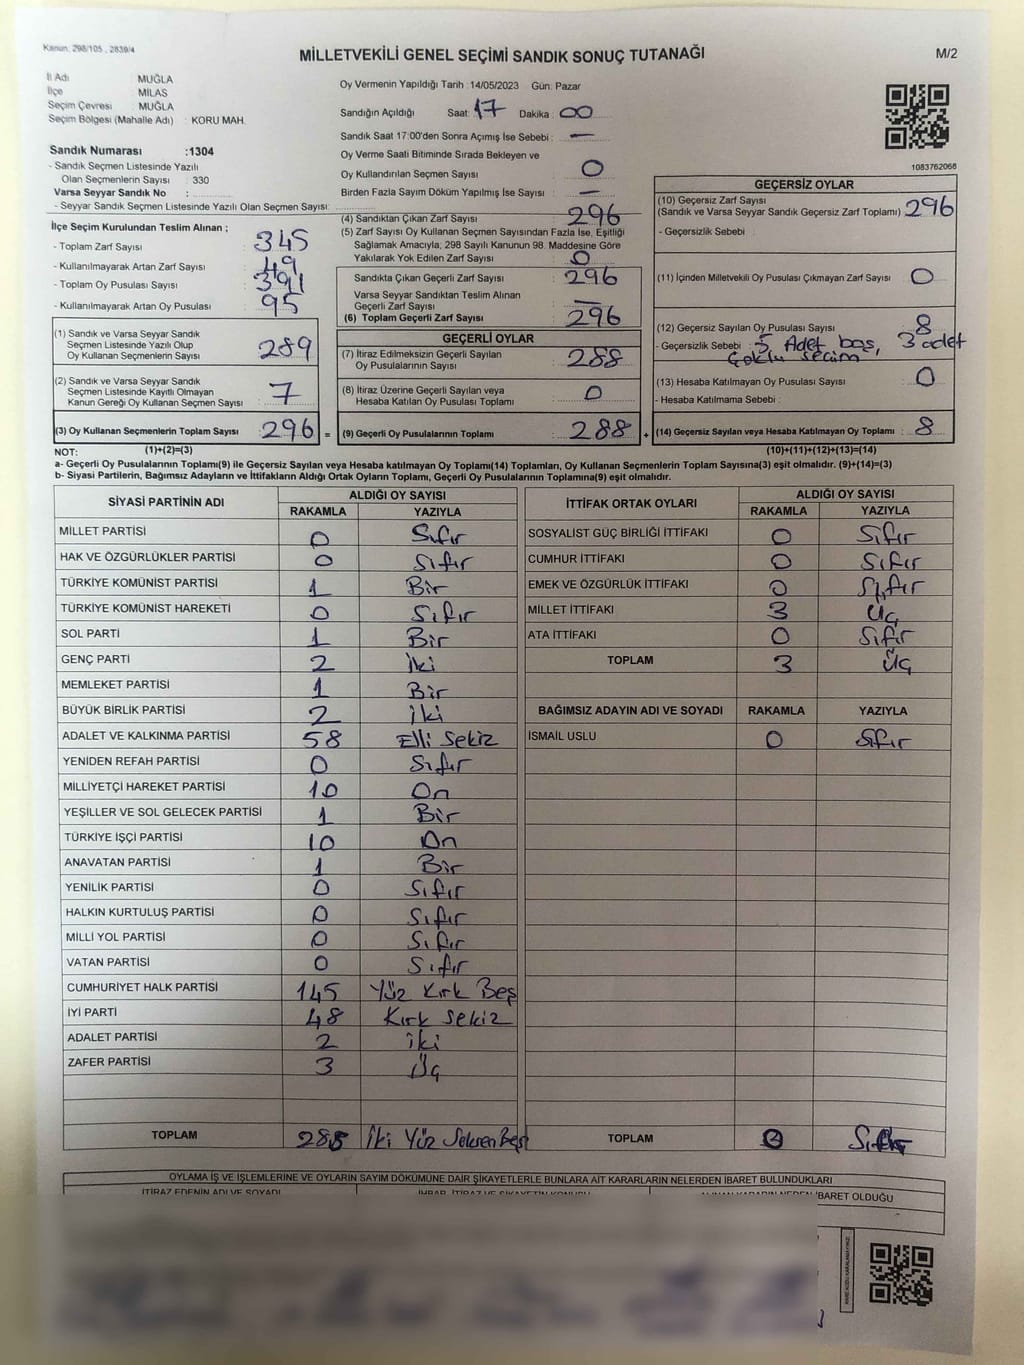 Kanun: 298/105 , 2839/4
MİLLETVEKİLİ GENEL SEÇİMİ SANDIK SONUÇ TUTANAĞI
M/2
İl Adı MUĞLA
İlçe MİLAS
Seçim Çevresi MUĞLA
Seçim Bölgesi (Mahalle Adı) : KORU MAH.
Sandık Numarası :1304
- Sandık Seçmen Listesinde Yazılı
Olan Seçmenlerin Sayısı : 330
Varsa Seyyar Sandık No :
- Seyyar Sandık Seçmen Listesinde Yazılı Olan Seçmen Sayısı:
Oy Vermenin Yapıldığı Tarih :14/05/2023 Gün: Pazar
Sandığın Açıldığı Saat: 17 Dakika: 00
Sandık Saat 17:00'den Sonra Açımış İse Sebebi : —
Oy Verme Saati Bitiminde Sırada Bekleyen ve
Oy Kullandırılan Seçmen Sayısı : 0
Birden Fazla Sayım Döküm Yapılmış İse Sayısı : —
1083762068
İlçe Seçim Kurulundan Teslim Alınan ;
- Toplam Zarf Sayısı 345
- Kullanılmayarak Artan Zarf Sayısı 49
- Toplam Oy Pusulası Sayısı 391
- Kullanılmayarak Artan Oy Pusulası 95
(1) Sandık ve Varsa Seyyar Sandık
Seçmen Listesinde Yazılı Olup
Oy Kullanan Seçmenlerin Sayısı 289
(2) Sandık ve Varsa Seyyar Sandık
Seçmen Listesinde Kayıtlı Olmayan
Kanun Gereği Oy Kullanan Seçmen Sayısı 7
(3) Oy Kullanan Seçmenlerin Toplam Sayısı 296 =
(4) Sandıktan Çıkan Zarf Sayısı 296
(5) Zarf Sayısı Oy Kullanan Seçmen Sayısından Fazla İse, Eşitliği
Sağlamak Amacıyla; 298 Sayılı Kanunun 98. Maddesine Göre
Yakılarak Yok Edilen Zarf Sayısı 0
Sandıkta Çıkan Geçerli Zarf Sayısı 296
Varsa Seyyar Sandıktan Teslim Alınan
Geçerli Zarf Sayısı —
(6) Toplam Geçerli Zarf Sayısı 296
GEÇERLİ OYLAR
(7) İtiraz Edilmeksizin Geçerli Sayılan
Oy Pusulasının Sayısı 288
(8) İtiraz Üzerine Geçerli Sayılan veya
Hesaba Katılan Oy Pusulası Toplamı 0
(9) Geçerli Oy Pusulalarının Toplamı 288 +
GEÇERSİZ OYLAR
(10) Geçersiz Zarf Sayısı
(Sandık ve Varsa Seyyar Sandık Geçersiz Zarf Toplamı) 296
- Geçersizlik Sebebi :
(11) İçinden Milletvekili Oy Pusulası Çıkmayan Zarf Sayısı 0
(12) Geçersiz Sayılan Oy Pusulası Sayısı 8
- Geçersizlik Sebebi : 5 Adet boş, 3 adet
Çoklu seçim
(13) Hesaba Katılmayan Oy Pusulası Sayısı 0
- Hesaba Katılmama Sebebi :
(14) Geçersiz Sayılan veya Hesaba Katılmayan Oy Toplamı 8
NOT: (1)+(2)=(3) (10)+(11)+(12)+(13)=(14)
a- Geçerli Oy Pusulalarının Toplamı(9) ile Geçersiz Sayılan veya Hesaba katılmayan Oy Toplamı(14) Toplamları, Oy Kullanan Seçmenlerin Toplam Sayısına(3) eşit olmalıdır. (9)+(14)=(3)
b- Siyasi Partilerin, Bağımsız Adayların ve İttifakların Aldığı Ortak Oyların Toplamı, Geçerli Oy Pusulalarının Toplamına(9) eşit olmalıdır.
SİYASİ PARTİNİN ADI ALDIĞI OY SAYISI
RAKAMLA YAZIYLA
MİLLET PARTİSİ 0 Sıfır
HAK VE ÖZGÜRLÜKLER PARTİSİ 0 Sıfır
TÜRKİYE KOMÜNİST PARTİSİ 1 Bir
TÜRKİYE KOMÜNİST HAREKETİ 0 Sıfır
SOL PARTİ 1 Bir
GENÇ PARTİ 2 İki
MEMLEKET PARTİSİ 1 Bir
BÜYÜK BİRLİK PARTİSİ 2 İki
ADALET VE KALKINMA PARTİSİ 58 Elli Sekiz
YENİDEN REFAH PARTİSİ 0 Sıfır
MİLLİYETÇİ HAREKET PARTİSİ 10 On
YEŞİLLER VE SOL GELECEK PARTİSİ 1 Bir
TÜRKİYE İŞÇİ PARTİSİ 10 On
ANAVATAN PARTİSİ 1 Bir
YENİLİK PARTİSİ 0 Sıfır
HALKIN KURTULUŞ PARTİSİ 0 Sıfır
MİLLİ YOL PARTİSİ 0 Sıfır
VATAN PARTİSİ 0 Sıfır
CUMHURİYET HALK PARTİSİ 145 Yüz Kırk Beş
İYİ PARTİ 48 Kırk Sekiz
ADALET PARTİSİ 2 İki
ZAFER PARTİSİ 3 Üç
TOPLAM 285 İki Yüz Seksen Beş
İTTİFAK ORTAK OYLARI ALDIĞI OY SAYISI
RAKAMLA YAZIYLA
SOSYALİST GÜÇ BİRLİĞİ İTTİFAKI 0 Sıfır
CUMHUR İTTİFAKI 0 Sıfır
EMEK VE ÖZGÜRLÜK İTTİFAKI 0 Sıfır
MİLLET İTTİFAKI 3 Üç
ATA İTTİFAKI 0 Sıfır
TOPLAM 3 Üç
BAĞIMSIZ ADAYIN ADI VE SOYADI RAKAMLA YAZIYLA
İSMAİL USLU 0 Sıfır
TOPLAM Sıfır
OYLAMA İŞ VE İŞLEMLERİNE VE OYLARIN SAYIM DÖKÜMÜNE DAİR ŞİKAYETLERLE BUNLARA AİT KARARLARIN NELERDEN İBARET BULUNDUKLARI
İTİRAZ EDENİN ADI VE SOYADI
İBARET OLDUĞU